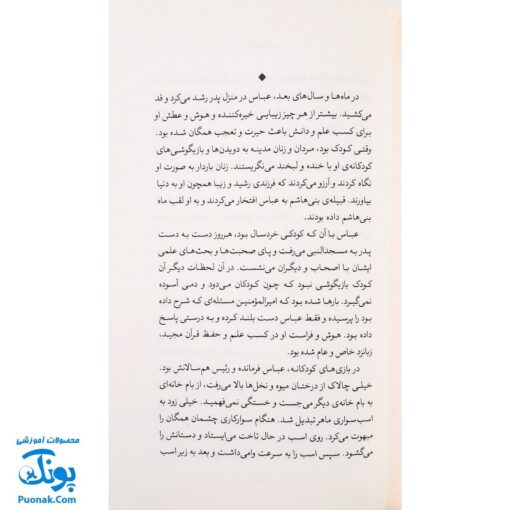 در ماه‌ها و سال‌های بعد، عباس در منزل پدر رشد می‌کرد و قد
می‌کشید. بیشتر از هر چیز زیبایی خیره‌کننده و هوش و عطش او
برای کسب علم و دانش باعث حیرت و تعجب همگان شده بود.
وقتی کودک بود، مردان و زنان مدینه به دویدن‌ها و بازیگوشی‌های
کودکانه‌ی او با خنده و لبخند می‌نگریستند. زنان باردار به صورت او
نگاه کردند و آرزو می‌کردند که فرزندی رشید و زیبا همچون او به دنیا
بیاورند. قبیله‌ی بنی‌هاشم به عباس افتخار می‌کردند و به او لقب ماه
بنی‌هاشم داده بودند.
عباس با آن که کودکی خردسال بود، هرروز دست به دست
پدر به مسجدالنبی می‌رفت و پای صحبت‌ها و بحث‌های علمی
ایشان با اصحاب و دیگران می‌نشست. در آن لحظات دیگر آن
کودک بازیگوشی نبود که چون کودکان می‌دود و دمی آسوده
نمی‌گیرد. بارها شده بود که امیرالمؤمنین مسئله‌ای که شرح داده
بود را پرسیده و فقط عباس دست بلند کرده و به درستی پاسخ
داده بود. هوش و فراست او در کسب علم و حفظ قرآن مجید،
زبانزد خاص و عام شده بود.
در بازی‌های کودکانه، عباس فرمانده و رئیس هم‌سالانش بود.
خیلی چالاک از درختان میوه و نخل‌ها بالا می‌رفت، از بام خانه‌ای
به بام خانه‌ی دیگر می‌جست و خستگی نمی‌فهمید. خیلی زود به
اسب‌سواری ماهر تبدیل شد. هنگام سوارکاری چشمان همگان را
مبهوت می‌کرد. روی اسب در حال تاخت می‌ایستاد و دستانش را
می‌گشود. سپس اسب را به سرعت وامی‌داشت و بعد به زیر اسب
محصولات آموزشی
پونک
Puonak.Com